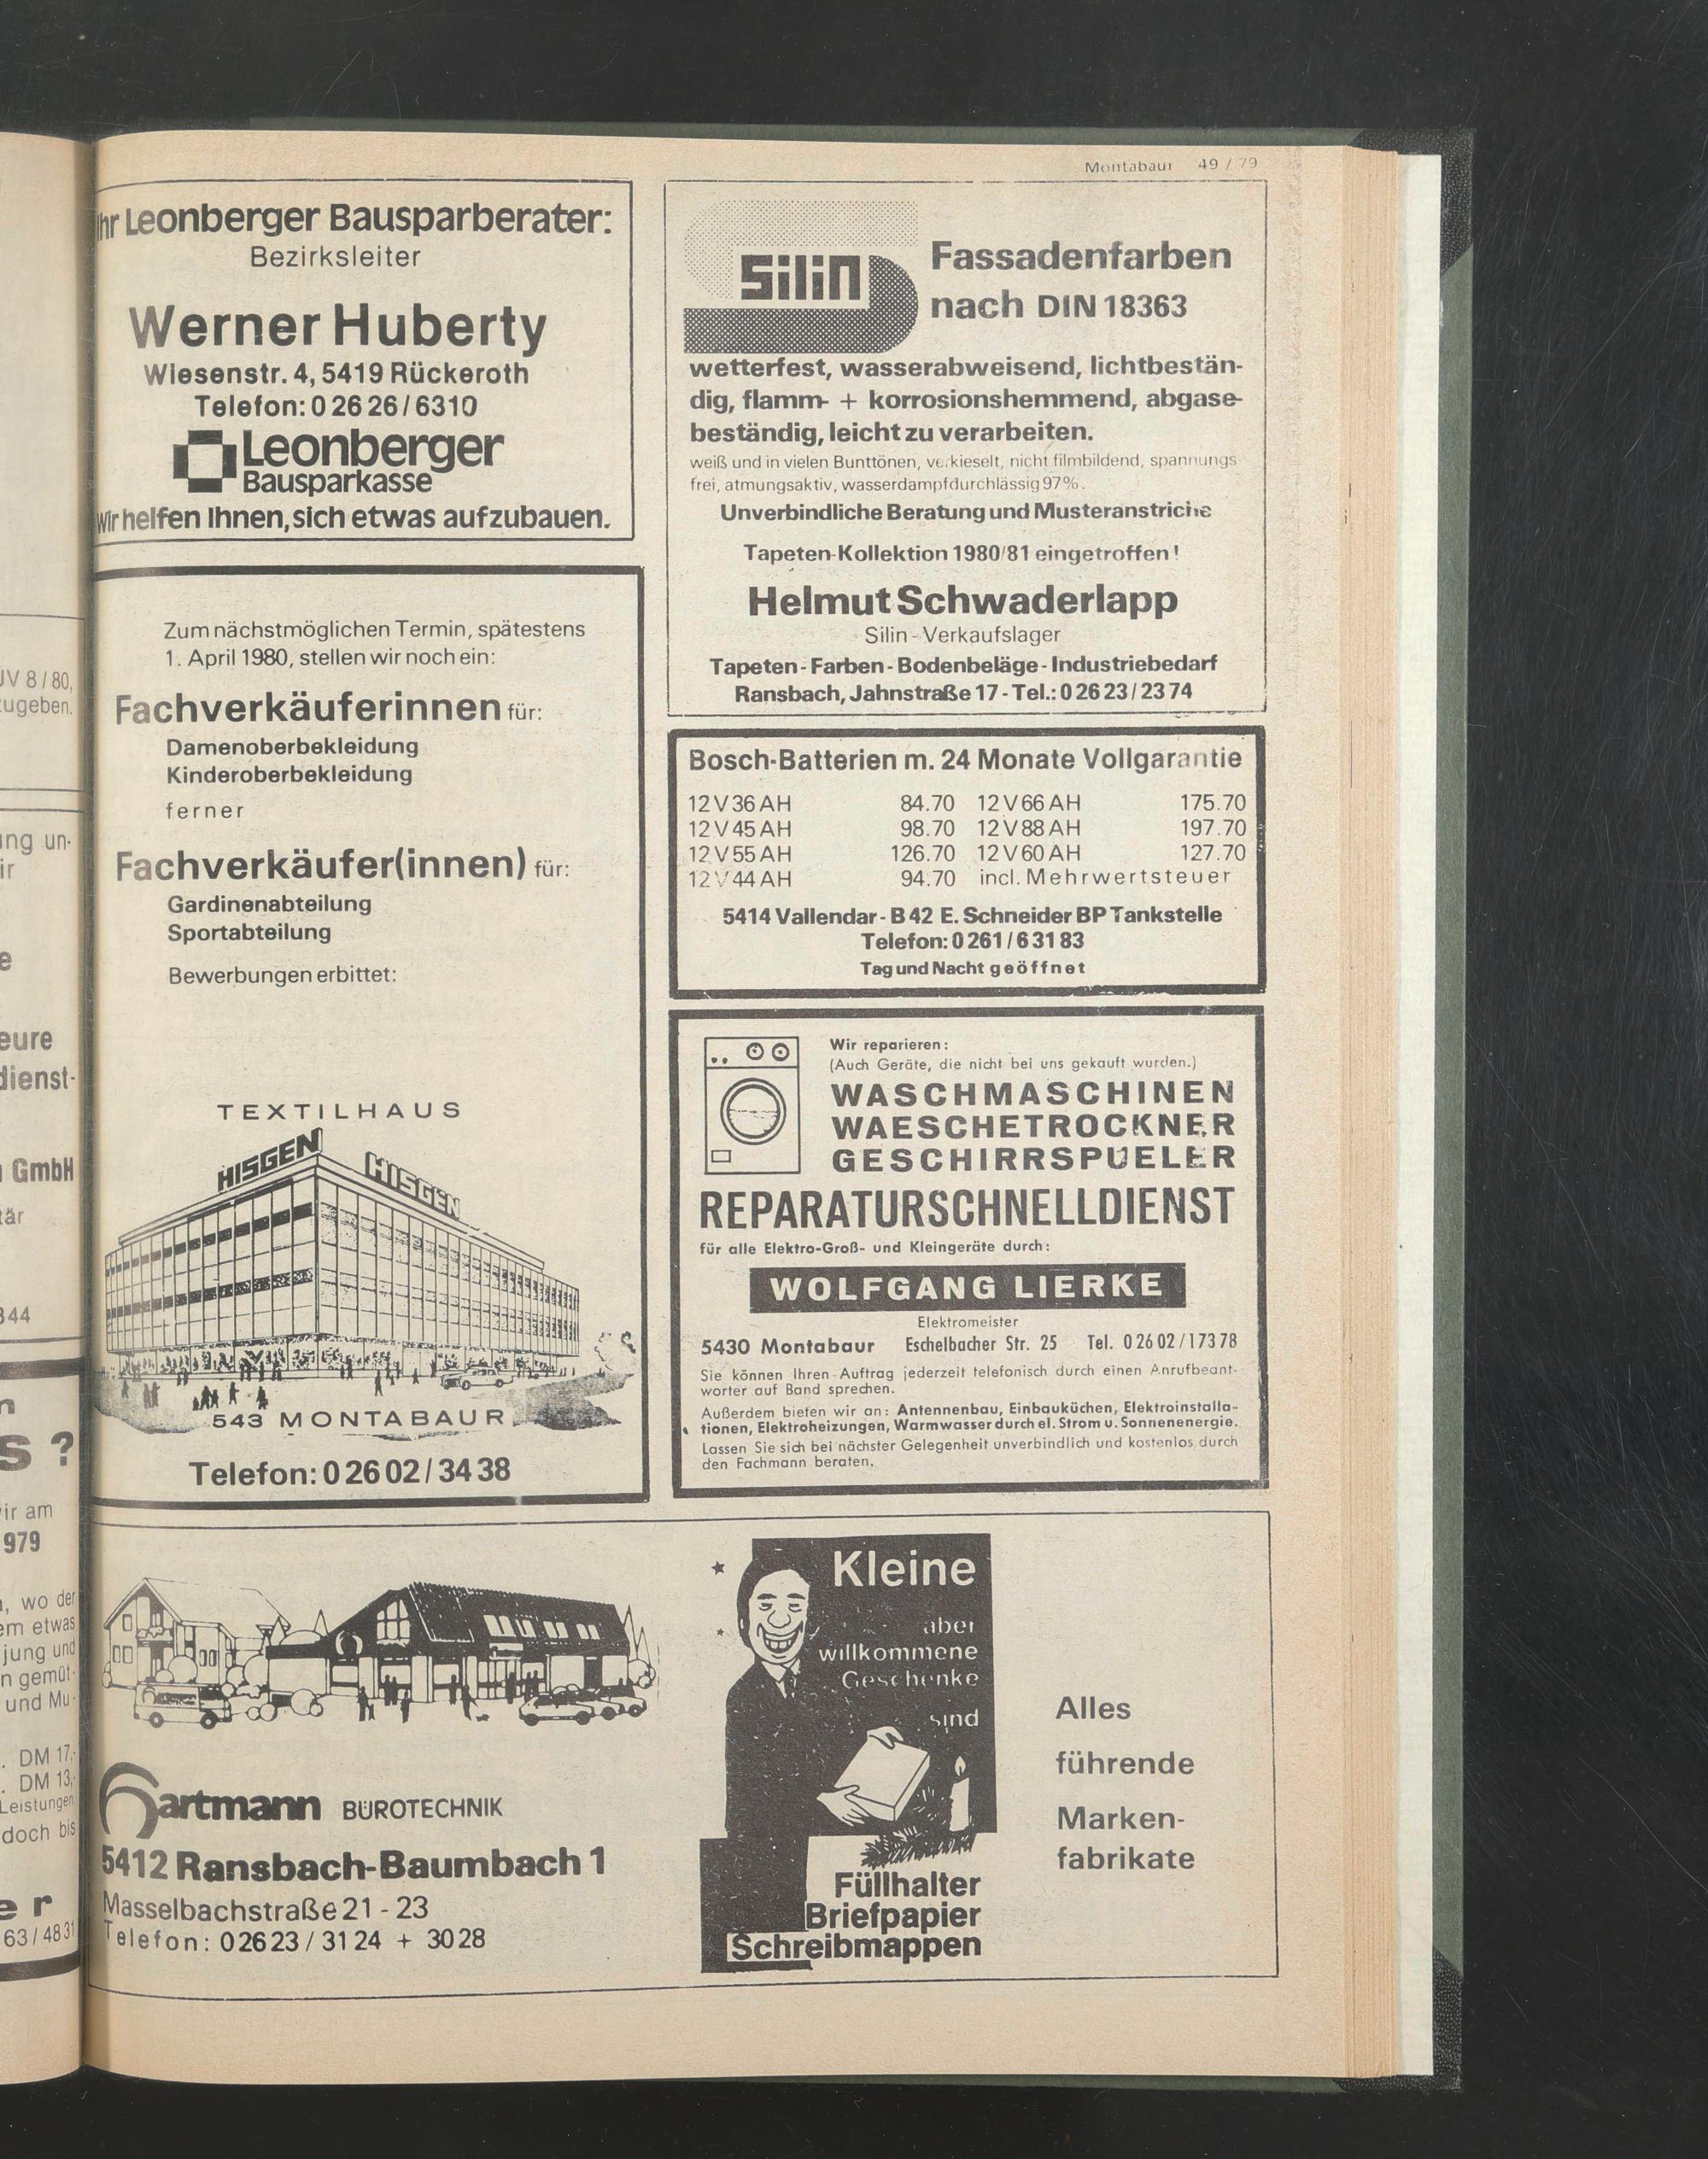 Montabaur 49 / 79
JV 8 / 80,
zugeben.
ung un-
ir
e
eure
dienst-
GmbH
tär
344
n
s ?
vir am
979
, wo der
em etwas
jung und
n gemüt-
und Mu-
. DM 17,-
. DM 13,-
Leistungen
doch bis
er
63 / 48 31
Ihr Leonberger Bausparberater:
Bezirksleiter
Werner Huberty
Wiesenstr. 4, 5419 Rückeroth
Telefon: 0 26 26 / 6310
Leonberger
Bausparkasse
Wir helfen Ihnen, sich etwas aufzubauen.
Zum nächstmöglichen Termin, spätestens
1. April 1980, stellen wir noch ein:
Fachverkäuferinnen für:
Damenoberbekleidung
Kinderoberbekleidung
ferner
Fachverkäufer(innen) für:
Gardinenabteilung
Sportabteilung
Bewerbungen erbittet:
TEXTILHAUS
HISGEN HISGEN
543 MONTABAUR
Telefon: 0 26 02 / 34 38
Silin
Fassadenfarben
nach DIN 18363
wetterfest, wasserabweisend, lichtbestän-
dig, flamm- + korrosionshemmend, abgase-
beständig, leicht zu verarbeiten.
weiß und in vielen Bunttönen, verkieselt, nicht filmbildend, spannungs-
frei, atmungsaktiv, wasserdampfdurchlässig 97%.
Unverbindliche Beratung und Musteranstriche
Tapeten-Kollektion 1980/81 eingetroffen!
Helmut Schwaderlapp
Silin - Verkaufslager
Tapeten - Farben - Bodenbeläge - Industriebedarf
Ransbach, Jahnstraße 17 - Tel.: 0 26 23 / 23 74
Bosch-Batterien m. 24 Monate Vollgarantie
12 V 36 AH 84.70 12 V 66 AH 175.70
12 V 45 AH 98.70 12 V 88 AH 197.70
12 V 55 AH 126.70 12 V 60 AH 127.70
12 V 44 AH 94.70 incl. Mehrwertsteuer
5414 Vallendar - B 42 E. Schneider BP Tankstelle
Telefon: 0 261 / 6 31 83
Tag und Nacht geöffnet
Wir reparieren:
(Auch Geräte, die nicht bei uns gekauft wurden.)
WASCHMASCHINEN
WAESCHETROCKNER
GESCHIRRSPUELER
REPARATURSCHNELLDIENST
für alle Elektro-Groß- und Kleingeräte durch:
WOLFGANG LIERKE
Elektromeister
5430 Montabaur Eschelbacher Str. 25 Tel. 0 26 02 / 173 78
Sie können Ihren Auftrag jederzeit telefonisch durch einen Anrufbeant-
worter auf Band sprechen.
Außerdem bieten wir an: Antennenbau, Einbauküchen, Elektroinstalla-
tionen, Elektroheizungen, Warmwasser durch el. Strom u. Sonnenenergie.
Lassen Sie sich bei nächster Gelegenheit unverbindlich und kostenlos durch
den Fachmann beraten.
Hartmann BÜROTECHNIK
5412 Ransbach-Baumbach 1
Masselbachstraße 21 - 23
Telefon: 02623 / 31 24 + 30 28
Kleine
aber
willkommene
Geschenke
sind
Füllhalter
Briefpapier
Schreibmappen
Alles
führende
Marken-
fabrikate